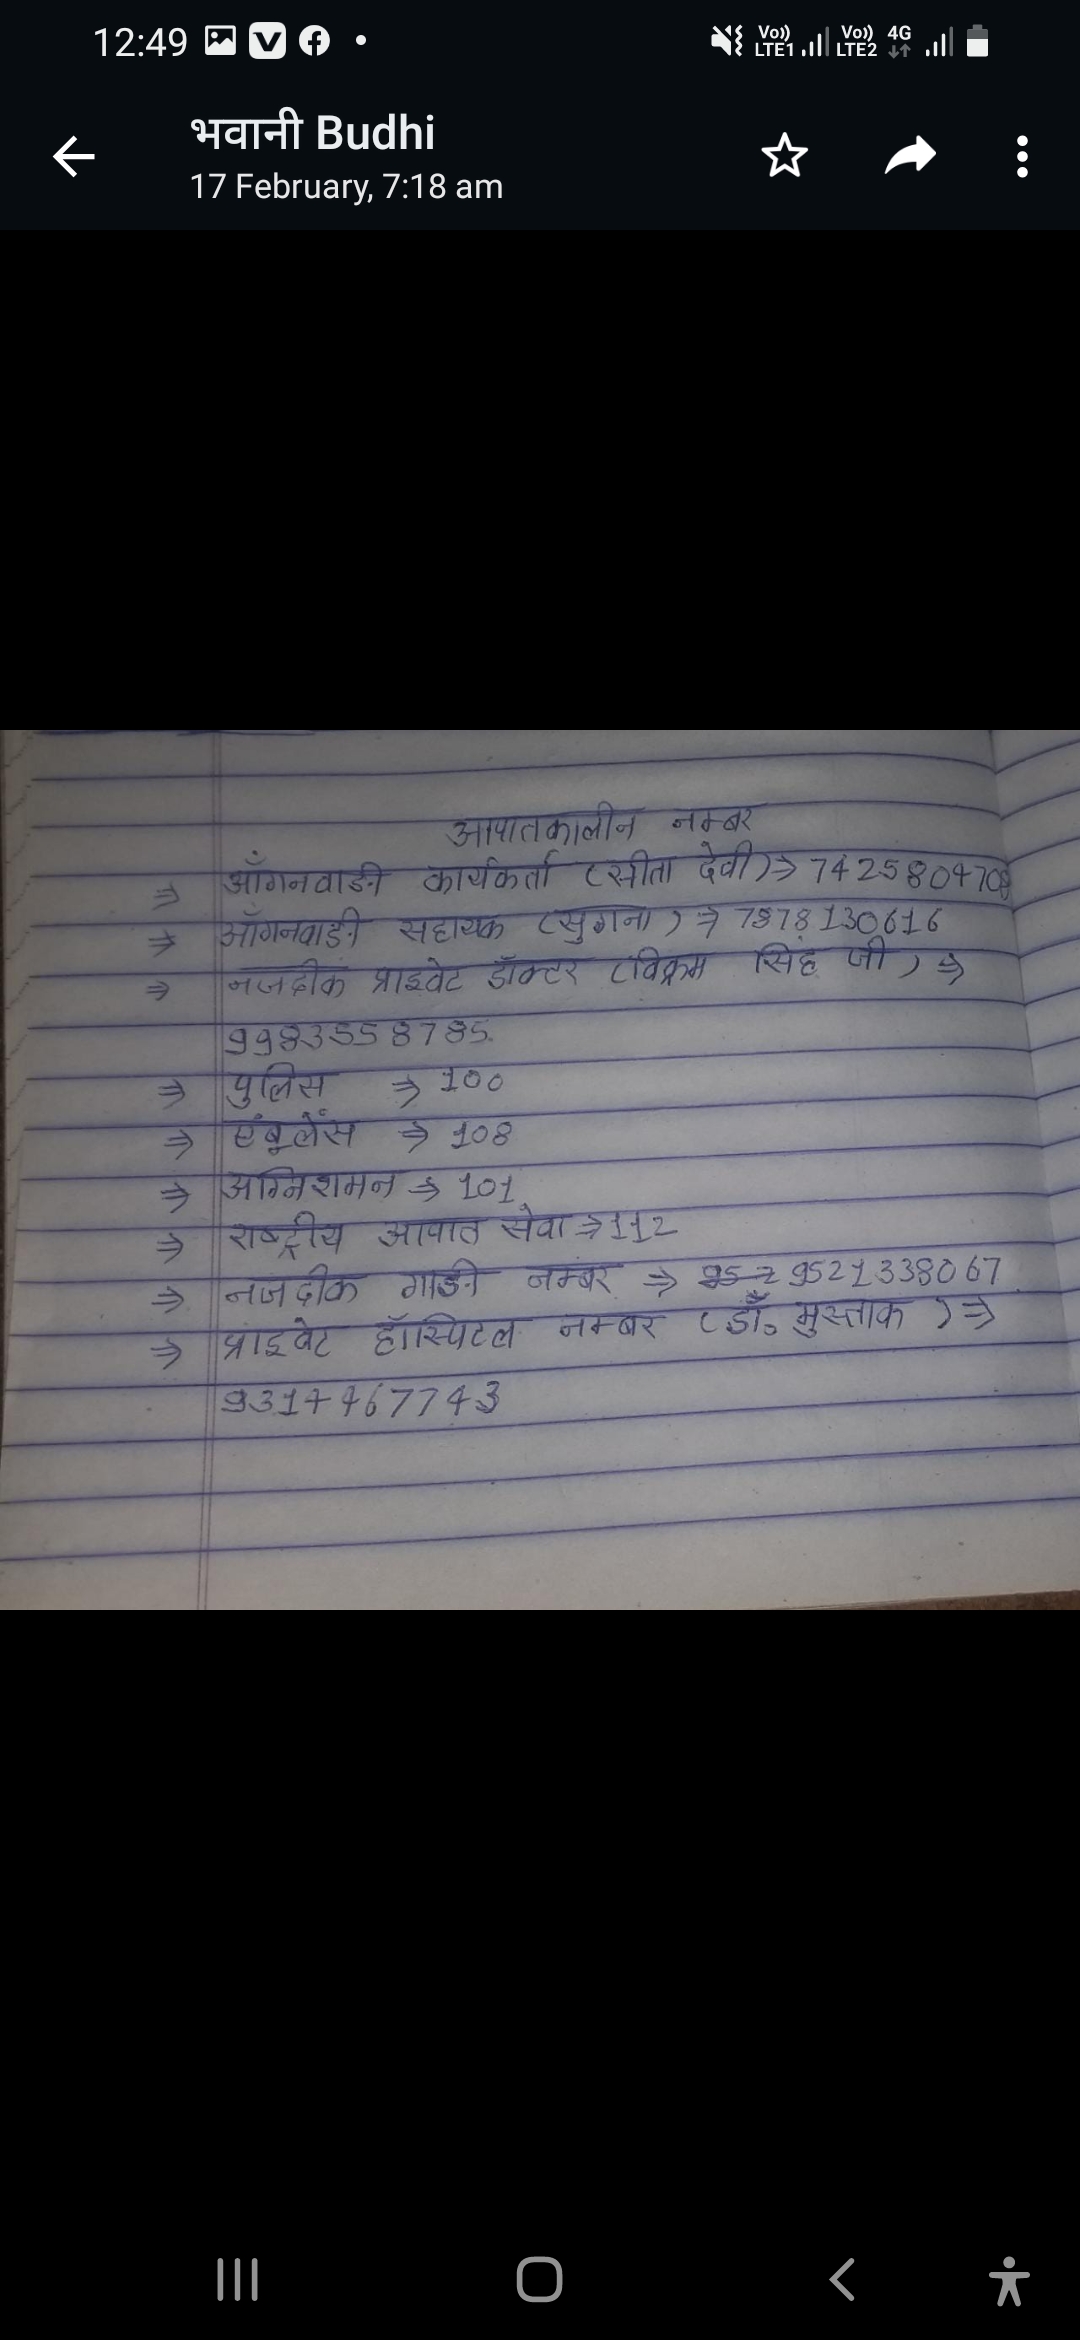 12:49
Vo)) LTE1 Vo)) LTE2 4G
भवानी Budhi
17 February, 7:18 am
आपातकालीन नम्बर
⇒ आँगनवाडी कार्यकर्ता (सीता देवी) ⇒ 7425804708
⇒ आँगनवाडी सहायक (सुगना) ⇒ 7878130616
⇒ नजदीक प्राइवेट डॉक्टर (विक्रम सिंह जी) ⇒
9983558785
⇒ पुलिस ⇒ 100
⇒ एंबूलेंस ⇒ 108
⇒ अग्निशमन ⇒ 101
⇒ राष्ट्रीय आपात सेवा ⇒ 112
⇒ नजदीक गाडी नम्बर ⇒ 9521338067
⇒ प्राइवेट हॉस्पिटल नम्बर (डॉ. मुस्ताक) ⇒
9314467743